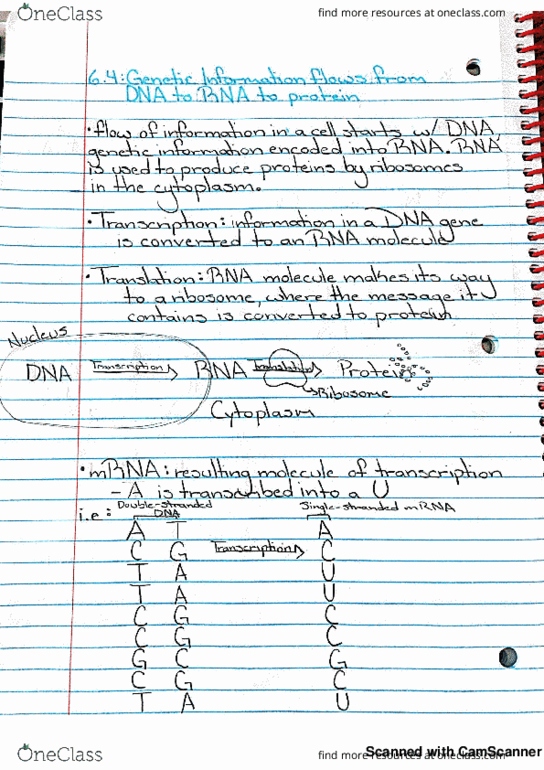 OneClass
find more resources at oneclass.com
6.4: Genetic Information flows from
DNA to RNA to protein
• flow of information in a cell starts w/ DNA,
genetic information encoded into RNA. RNA
is used to produce proteins by ribosomes
in the cytoplasm.
• Transcription: information in a DNA gene
is converted to an RNA molecule
• Translation: RNA molecule makes its way
to a ribosome, where the message it
contains is converted to protein
Nucleus
DNA Transcription RNA Translation Protein
Ribosome
Cytoplasm
• mRNA: resulting molecule of transcription
- A is transcribed into a U
i.e: Double-stranded DNA Single-stranded mRNA
A T A
C G Transcription C
T A U
T A U
C G C
C G C
G C G
C G C
T A U
OneClass
find more resources at oneclass.com
Scanned with CamScanner